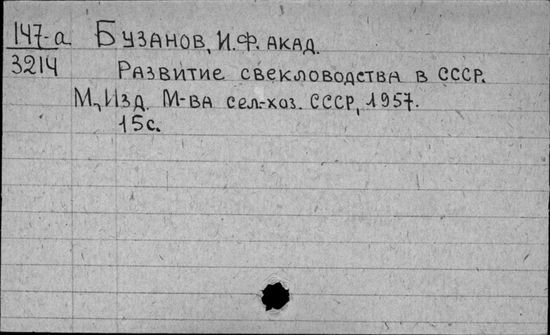 147-а Бузанов, И.Ф. акад.
3214 Развитие свекловодства в СССР.
М., Изд. М-ва сел-хоз. СССР, 1957.
15с.